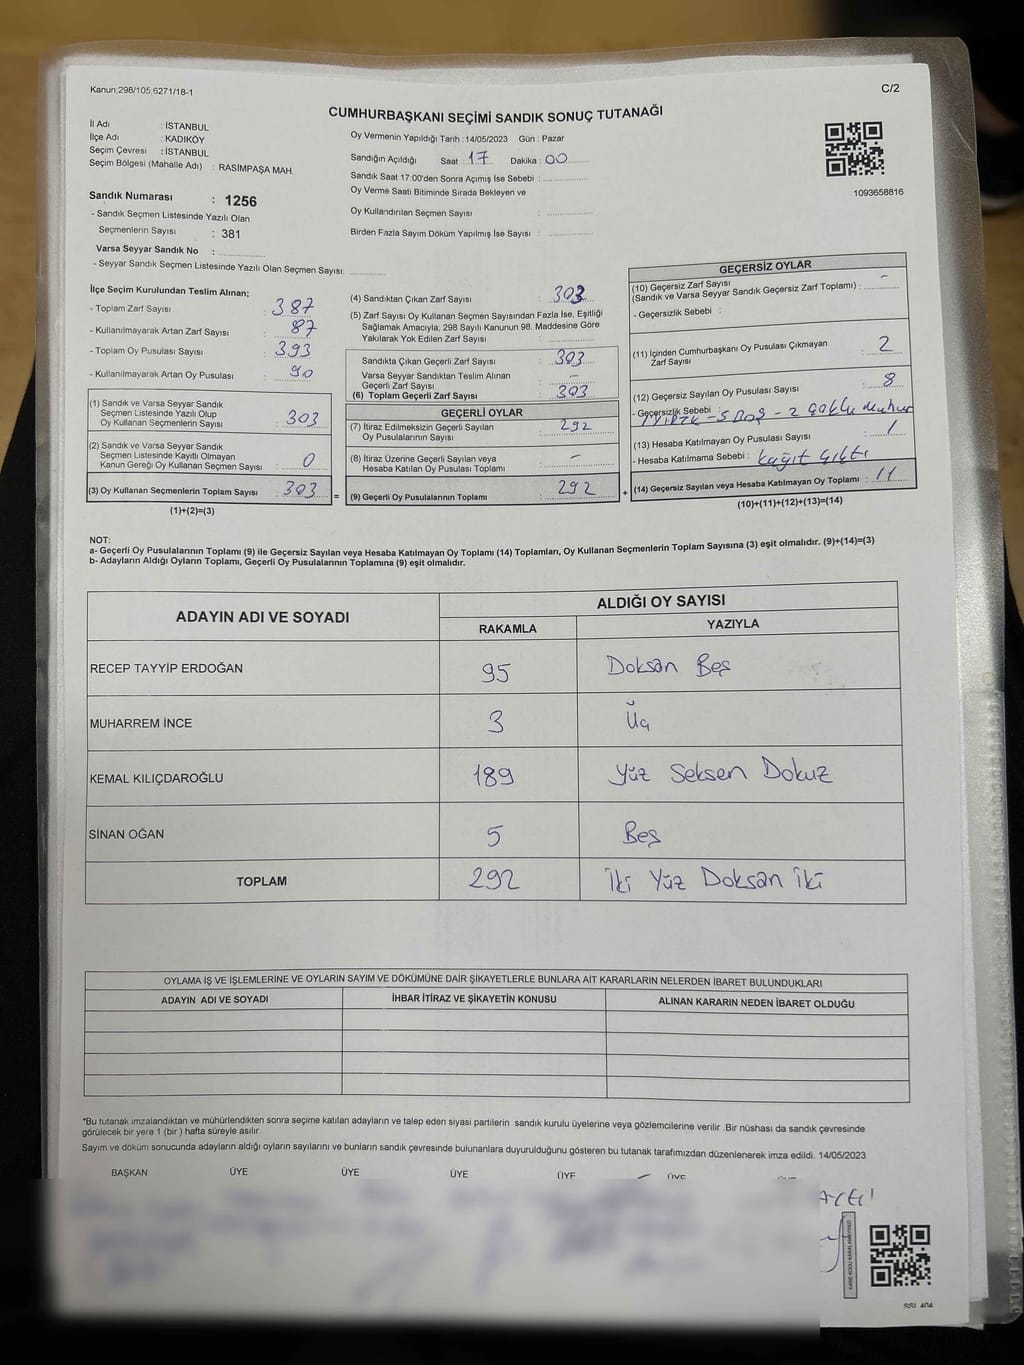 Kanun:298/105 6271/18-1
C/2
CUMHURBAŞKANI SEÇİMİ SANDIK SONUÇ TUTANAĞI
İl Adı : İSTANBUL
İlçe Adı : KADIKÖY
Seçim Çevresi : İSTANBUL
Seçim Bölgesi (Mahalle Adı) : RASİMPAŞA MAH.
Sandık Numarası : 1256
- Sandık Seçmen Listesinde Yazılı Olan
Seçmenlerin Sayısı : 381
Varsa Seyyar Sandık No :
- Seyyar Sandık Seçmen Listesinde Yazılı Olan Seçmen Sayısı:
Oy Vermenin Yapıldığı Tarih :14/05/2023 Gün : Pazar
Sandığın Açıldığı Saat : 17 Dakika : 00
Sandık Saat 17:00'den Sonra Açımış İse Sebebi :
Oy Verme Saati Bitiminde Sırada Bekleyen ve
Oy Kullandırılan Seçmen Sayısı :
Birden Fazla Sayım Döküm Yapılmış İse Sayısı :
1093658816
İlçe Seçim Kurulundan Teslim Alınan;
- Toplam Zarf Sayısı : 387
- Kullanılmayarak Artan Zarf Sayısı : 87
- Toplam Oy Pusulası Sayısı : 393
- Kullanılmayarak Artan Oy Pusulası : 90
(1) Sandık ve Varsa Seyyar Sandık
Seçmen Listesinde Yazılı Olup
Oy Kullanan Seçmenlerin Sayısı : 303
(2) Sandık ve Varsa Seyyar Sandık
Seçmen Listesinde Kayıtlı Olmayan
Kanun Gereği Oy Kullanan Seçmen Sayısı : 0
(3) Oy Kullanan Seçmenlerin Toplam Sayısı : 303 =
(1)+(2)=(3)
(4) Sandıktan Çıkan Zarf Sayısı : 303
(5) Zarf Sayısı Oy Kullanan Seçmen Sayısından Fazla İse, Eşitliği
Sağlamak Amacıyla; 298 Sayılı Kanunun 98. Maddesine Göre
Yakılarak Yok Edilen Zarf Sayısı :
Sandıkta Çıkan Geçerli Zarf Sayısı : 303
Varsa Seyyar Sandıktan Teslim Alınan
Geçerli Zarf Sayısı : -
(6) Toplam Geçerli Zarf Sayısı : 303
GEÇERLİ OYLAR
(7) İtiraz Edilmeksizin Geçerli Sayılan
Oy Pusulalarının Sayısı : 292
(8) İtiraz Üzerine Geçerli Sayılan veya
Hesaba Katılan Oy Pusulası Toplamı : -
(9) Geçerli Oy Pusulalarının Toplamı : 292 +
GEÇERSİZ OYLAR
(10) Geçersiz Zarf Sayısı
(Sandık ve Varsa Seyyar Sandık Geçersiz Zarf Toplamı) : -
- Geçersizlik Sebebi :
(11) İçinden Cumhurbaşkanı Oy Pusulası Çıkmayan
Zarf Sayısı : 2
(12) Geçersiz Sayılan Oy Pusulası Sayısı : 8
- Geçersizlik Sebebi - 5 Boş - 2 çoklu Mühür
(13) Hesaba Katılmayan Oy Pusulası Sayısı : 1
- Hesaba Katılmama Sebebi : kağıt çıktı
(14) Geçersiz Sayılan veya Hesaba Katılmayan Oy Toplamı : 11
(10)+(11)+(12)+(13)=(14)
NOT:
a- Geçerli Oy Pusulalarının Toplamı (9) ile Geçersiz Sayılan veya Hesaba Katılmayan Oy Toplamı (14) Toplamları, Oy Kullanan Seçmenlerin Toplam Sayısına (3) eşit olmalıdır. (9)+(14)=(3)
b- Adayların Aldığı Oyların Toplamı, Geçerli Oy Pusulalarının Toplamına (9) eşit olmalıdır.
ADAYIN ADI VE SOYADI
ALDIĞI OY SAYISI
RAKAMLA YAZIYLA
RECEP TAYYİP ERDOĞAN 95 Doksan Beş
MUHARREM İNCE 3 Üç
KEMAL KILIÇDAROĞLU 189 Yüz Seksen Dokuz
SİNAN OĞAN 5 Beş
TOPLAM 292 İki Yüz Doksan iki
OYLAMA İŞ VE İŞLEMLERİNE VE OYLARIN SAYIM VE DÖKÜMÜNE DAİR ŞİKAYETLERLE BUNLARA AİT KARARLARIN NELERDEN İBARET BULUNDUKLARI
ADAYIN ADI VE SOYADI İHBAR İTİRAZ VE ŞİKAYETİN KONUSU ALINAN KARARIN NEDEN İBARET OLDUĞU
*Bu tutanak imzalandıktan ve mühürlendikten sonra seçime katılan adayların ve talep eden siyasi partilerin sandık kurulu üyelerine veya gözlemcilerine verilir .Bir nüshası da sandık çevresinde
görülecek bir yere 1 (bir ) hafta süreyle asılır.
Sayım ve döküm sonucunda adayların aldığı oyların sayılarını ve bunların sandık çevresinde bulunanlara duyurulduğunu gösteren bu tutanak tarafımızdan düzenlenerek imza edildi. 14/05/2023
BAŞKAN ÜYE ÜYE ÜYE ÜYE ÜYE